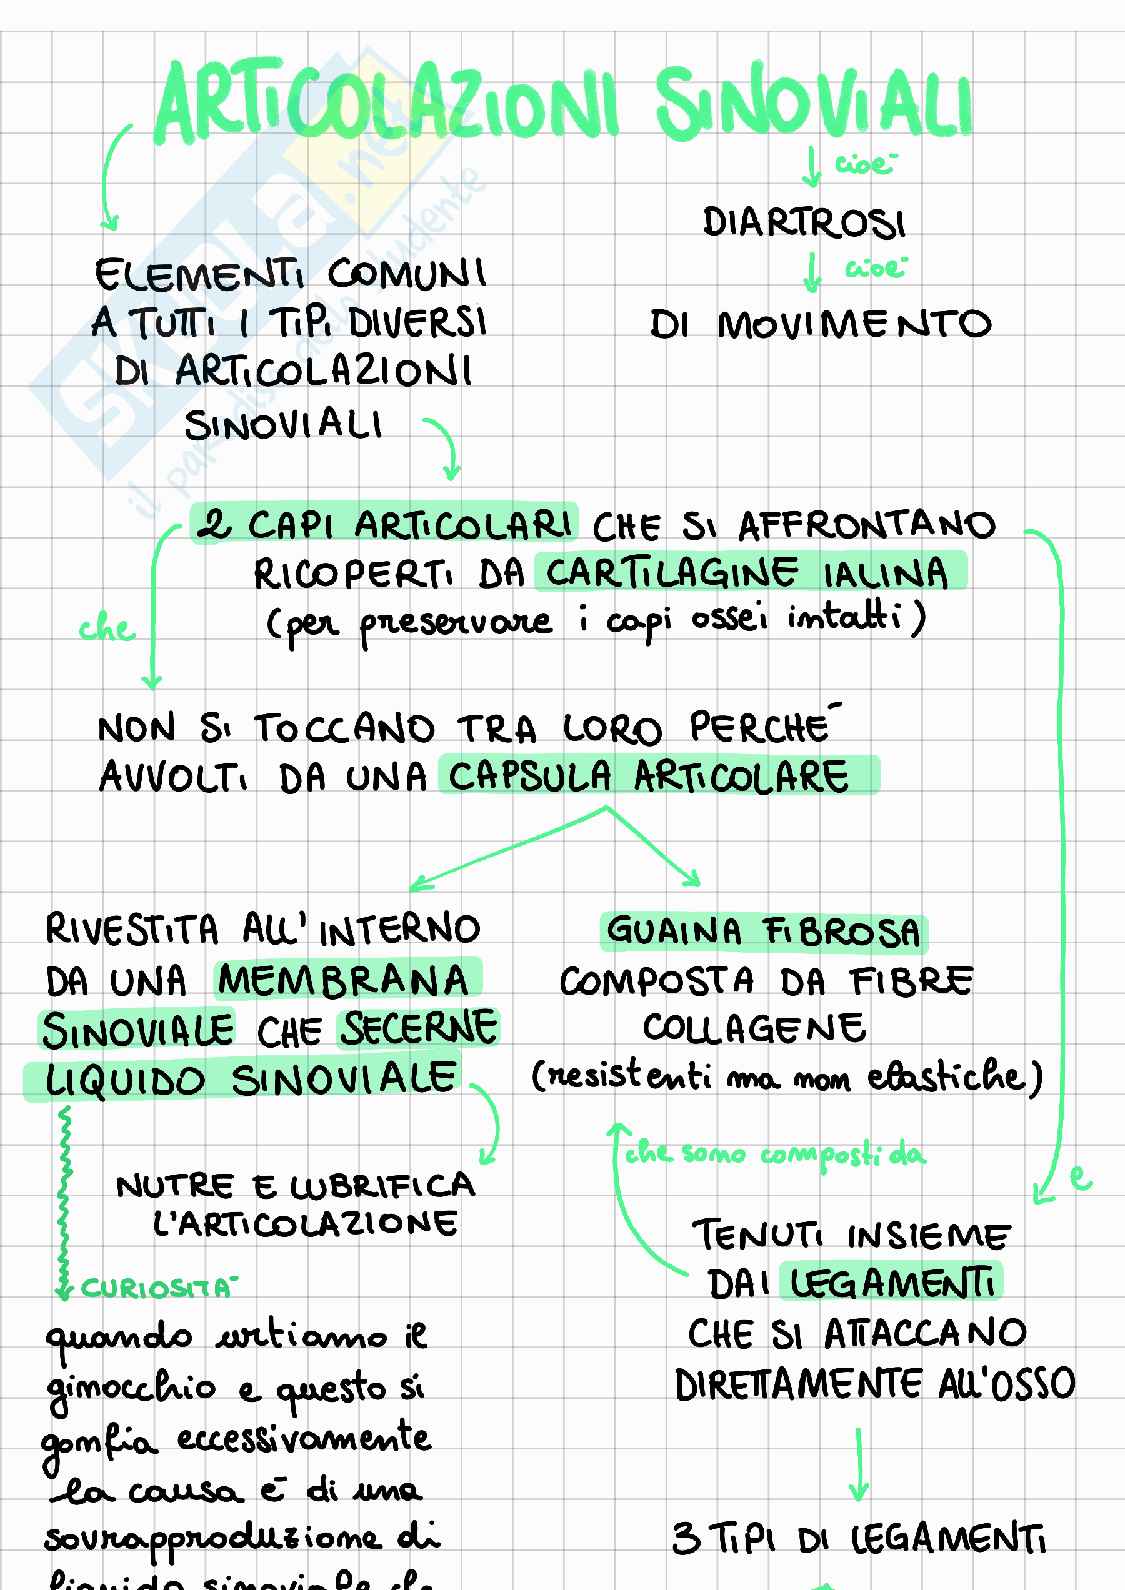 ARTICOLAZIONI SINOVIALI
cioè
DIARTROSI
cioè
DI MOVIMENTO
ELEMENTI COMUNI
A TUTTI I TIPI DIVERSI
DI ARTICOLAZIONI
SINOVIALI
2 CAPI ARTICOLARI CHE SI AFFRONTANO
RICOPERTI DA CARTILAGINE IALINA
(per preservare i capi ossei intatti)
che
NON SI TOCCANO TRA LORO PERCHÉ
AVVOLTI DA UNA CAPSULA ARTICOLARE
RIVESTITA ALL'INTERNO
DA UNA MEMBRANA
SINOVIALE CHE SECERNE
LIQUIDO SINOVIALE
NUTRE E LUBRIFICA
L'ARTICOLAZIONE
CURIOSITÀ
quando urtiamo il
ginocchio e questo si
gonfia eccessivamente
la causa è di una
sovrapproduzione di
liquido sinoviale che
GUAINA FIBROSA
COMPOSTA DA FIBRE
COLLAGENE
(resistenti ma non elastiche)
che sono composti da
e
TENUTI INSIEME
DAI LEGAMENTI
CHE SI ATTACCANO
DIRETTAMENTE ALL'OSSO
3 TIPI DI LEGAMENTI
SKUOLA.net